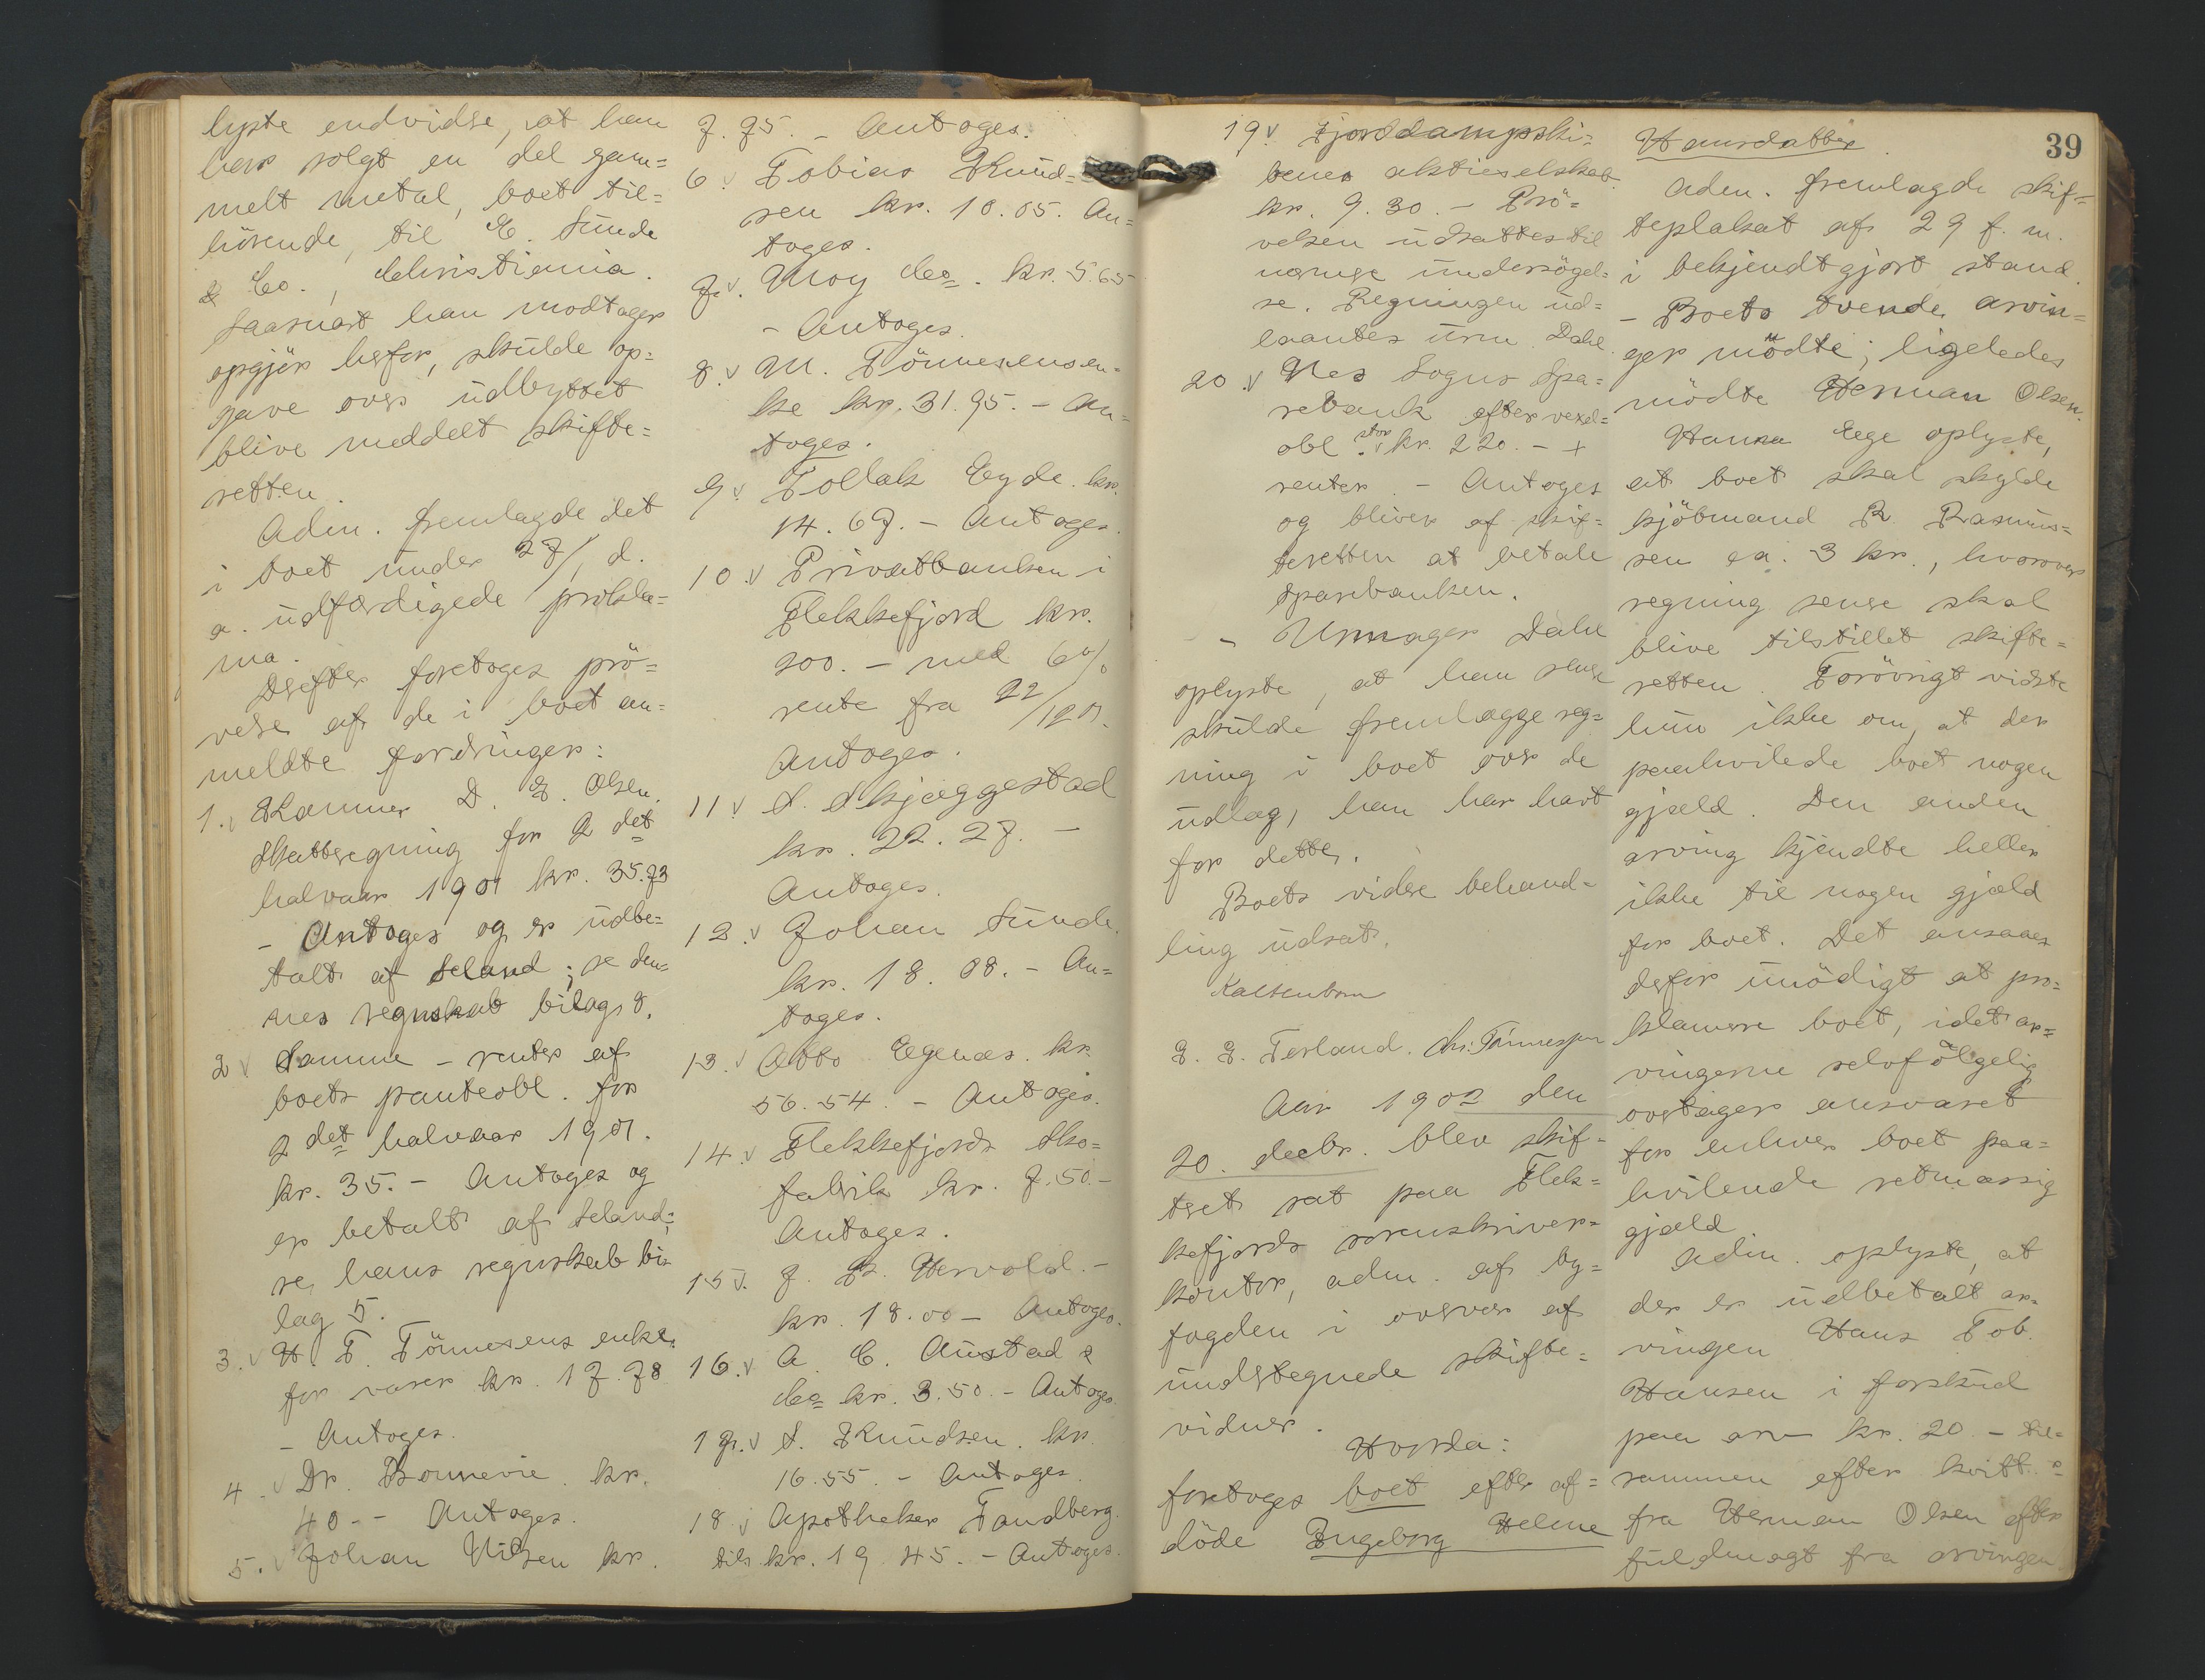 lyste endvidere, at han
har solgt en del gam=
melt metal, boet til=
hörende, til E. Sunde
& Co., Christiania.
Saasnart han modtager
opgjör herfor, skulde op=
gave over udbyttet
blive meddelt skifte=
retten.
Adm. fremlagde det
i boet under 27/1 d.
a. udfærdigede prokla=
ma.
Derefter foretoges prö=
velse af de i boet an=
meldte fordringer:
1. v Kæmner D. E. Olsen.
Skatteregning for 2 det
halvaar 1901 kr. 35.73
- Antoges og er udbe=
talt af Seland; se den=
nes regnskab bilag 8.
2 v Samme - renter af
boets panteobl. for
2 det halvaar 1901.
kr. 35. - Antoges og
er betalt af Seland;
se hans regnskab bi=
lag 5.
3. v H. F. Tönnesens enke.
for varer kr. 17.78
- Antoges.
4. v Dr. Bonnevie kr.
40. - Antoges.
5. v Johan Nilsen kr.
7.75. - Antoges.
6. v Tobias Knud=
sen kr. 10.05. An=
toges.
7. v Moy Co. kr. 5.65
- Antoges.
8. v M. Tönnesens en=
ke kr. 31.95. - An=
toges.
9. v Tollak Eyde. kr.
14.67. - Antoges.
10. v Privatbanken i
Flekkefjord kr.
200. - med 6 %
rente fra 22/12 01.
Antoges.
11 v S. Skjæggestad
kr. 22.27. -
Antoges.
12. v Johan Sunde.
kr. 18.08. - An=
toges.
13. v Otto Egenæs. kr.
56.54. - Antoges.
14. v Flekkefjords Sko=
fabrik kr. 7.50. -
Antoges.
15 v. J. B. Hervold. -
kr. 18.00 - Antoges.
16. v A. C. Austad &
Co. kr. 3.50. - Antoges.
17. v S. Knudsen. kr.
16.55. - Antoges.
18. v Apotheker Tandberg.
tils. kr. 19.45. - Antoges.
19 v Fjorddampski=
benes aktieselskab.
kr. 9.30. - Prö=
velsen udsattes til
nærmere undersögel=
se. Regningen ud=
laantes urm. Dahl.
20. v Nes Sogns Spa=
rebank efter vexel=
obl. stor v kr. 220. - +
renter. - Antoges
og bliver af skif=
teretten at betale
sparebanken.
- Urmager Dahl
oplyste, at han senere
skulde fremlægge reg=
ning i boet over de
udlæg, han har havt
for dette.
Boets videre behand=
ling udsat.
Kaltenborn
E. E. Terland. Chr. Tönnessen
39
Aar 1902 den
20. decbr. blev skif=
teret sat paa Flek=
kefjords sorenskriver=
kontor, adm. af by=
fogden i overvær af
undertegnede skifte=
vidner.
Hvorda:
foretoges boet efter af=
döde Ingeborg Helene
Hansdatter.
Adm. fremlagde skif=
teplakat af 29 f. m.
i bekjendtgjort stand.
- Boets tvende arvin=
ger mödte; ligeledes
mödte Herman Olsen.
Hanna Ege oplyste,
at boet skal skylde
kjöbmand R. Rasmus=
sen ca. 3 kr., hvorover
regning senere skal
blive tilstillet skifte=
retten. Forövrigt vidste
hun ikke om, at der
paahvilede boet nogen
gjæld. Den anden
arving kjendte heller
ikke til nogen gjæld
for boet. Det ansaaes
derfor unödigt at pro=
klamere boet, idet ar=
vingerne selvfölgelig
overtager ansvaret
for enhver boet paa=
hvilende retmæssig
gjæld.
Adm. oplyste, at
der er udbetalt ar=
vingen Hans Tob.
Hansen i forskud
paa arv kr. 20 - til=
sammen efter kvitt.
fra Herman Olsen efter
fuldmagt fra arvingen